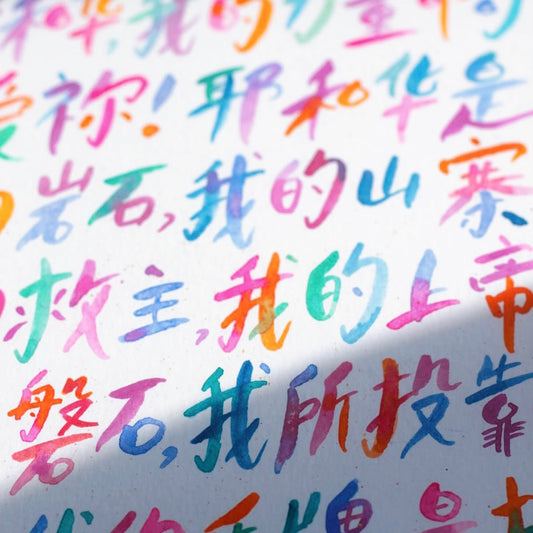 和华,我的力量
爱祢!耶和华是
岩石,我的山寨
救主,我的上帝
磐石,我所投靠
牌 是